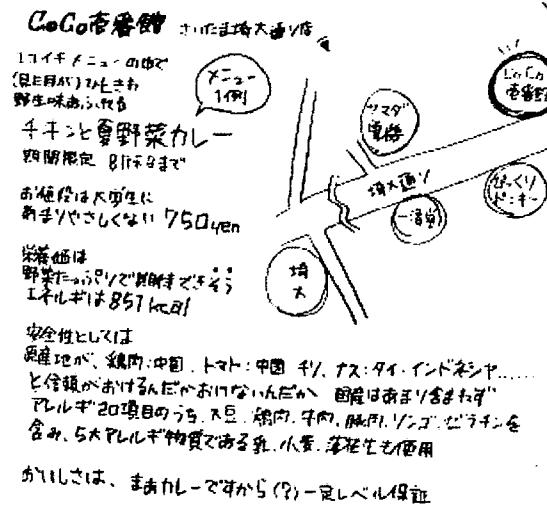 CoCo壱番館 さいたま埼大通り店
ココイチメニューの中で
(見た目が)ひときわ
野生味あふれる
チキンと夏野菜カレー
期間限定 8/末まで
お値段は大学生に
あまりやさしくない 750yen
栄養価は
野菜たっぷりで期待できそう
エネルギは857kcal
メニュー
1例
ヤマダ
電機
CoCo
壱番館
埼大通り
一清堂
びっくり
ドンキー
埼
大
安全性としては
原産地が、鶏肉:中国、トマト:中国 チリ、ナス:タイ・インドネシヤ……
と信頼がおけるんだかおけないんだか 国産はあまり含まれず
アレルギ20項目のうち、大豆、鶏肉、牛肉、豚肉、リンゴ、ゼラチンを
含み、5大アレルギ物質である乳、小麦、落花生も使用
おいしさは、まあカレーですから(?)一定レベル保証